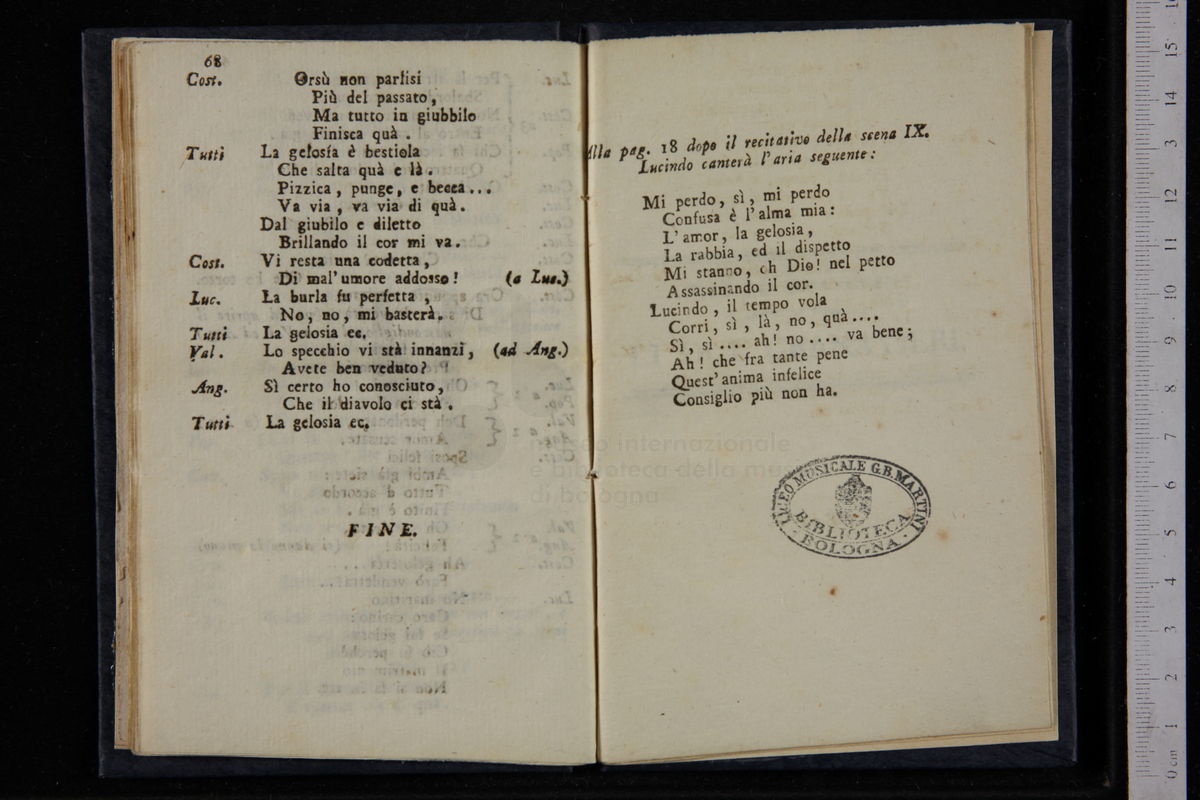 68
Cost. Orsù non partisi
Più del passato,
Ma tutto in giubbilo
Finisca quà.
Tutti La gelosía è bestiola
Che salta quà e là.
Pizzica, punge, e becca...
Va via, va via di quà.
Dal giubilo e diletto
Brillando il cor mi va.
Cost. Vi resta una codetta,
Di mal'umore addosso! (a Luc.)
Luc. La burla fu perfetta,
No, no, mi basterà.
Tutti La gelosia ec.
Val. Lo specchio vi stà innanzi, (ad Ang.)
Avete ben veduto?
Ang. Sì certo ho conosciuto,
Che il diavolo ci stà.
Tutti La gelosia ec.
FINE.
Alla pag. 18 dopo il recitativo della scena IX.
Lucindo canterà l'aria seguente:
Mi perdo, sì, mi perdo
Confusa è l'alma mia:
L'amor, la gelosia,
La rabbia, ed il dispetto
Mi stanno, oh Dio! nel petto
Assassinando il cor.
Lucindo, il tempo vola
Corri, sì, là, no, quà....
Sì, sì.... ah! no.... va bene;
Ah! che fra tante pene
Quest'anima infelice
Consiglio più non ha.
LICEO MUSICALE G.B. MARTINI
BIBLIOTECA
BOLOGNA
museo internazionale
e biblioteca della musica
di bologna